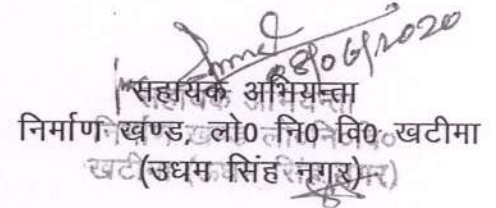 08/06/2020
सहायक अभियन्ता
निर्माण खण्ड, लो0 नि0 वि0 खटीमा
(उधम सिंह नगर)